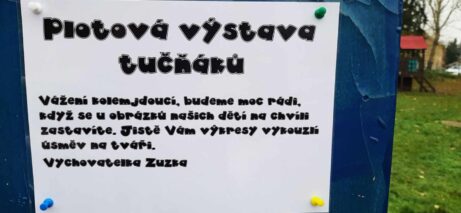 Plotová výstava
tučňáků
Vážení kolemjdoucí, budeme moc rádi,
když se u obrázků našich dětí na chvíli
zastavíte. Jistě Vám výkresy vykouzlí
úsměv na tváři.
Vychovatelka Zuzka